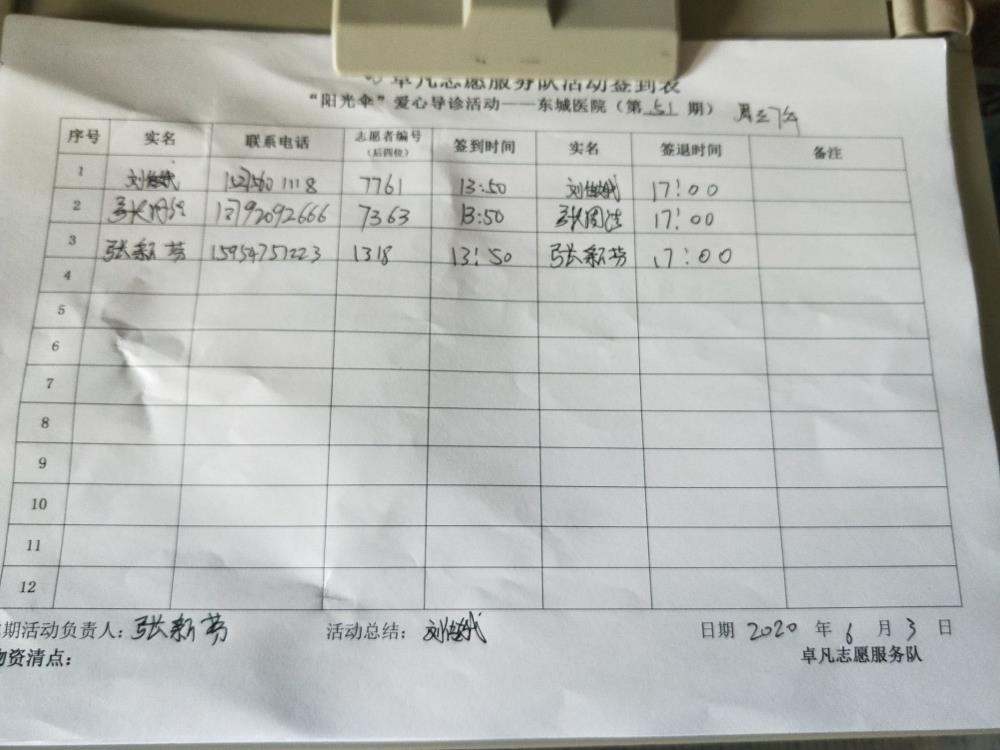 卓凡志愿服务队活动签到表
“阳光伞”爱心导诊活动——东城医院（第 51 期） 周三下午
序号 实名 联系电话 志愿者编号（后四位） 签到时间 实名 签退时间 备注
1 1118 7761 13:50 17:00
2 7363 13:50 17:00
3 张新芬 15954757223 1318 13:50 张新芬 17:00
4
5
6
7
8
9
10
11
12
期活动负责人：张新芬 活动总结： 日期 2020 年 6 月 3 日
物资清点： 卓凡志愿服务队